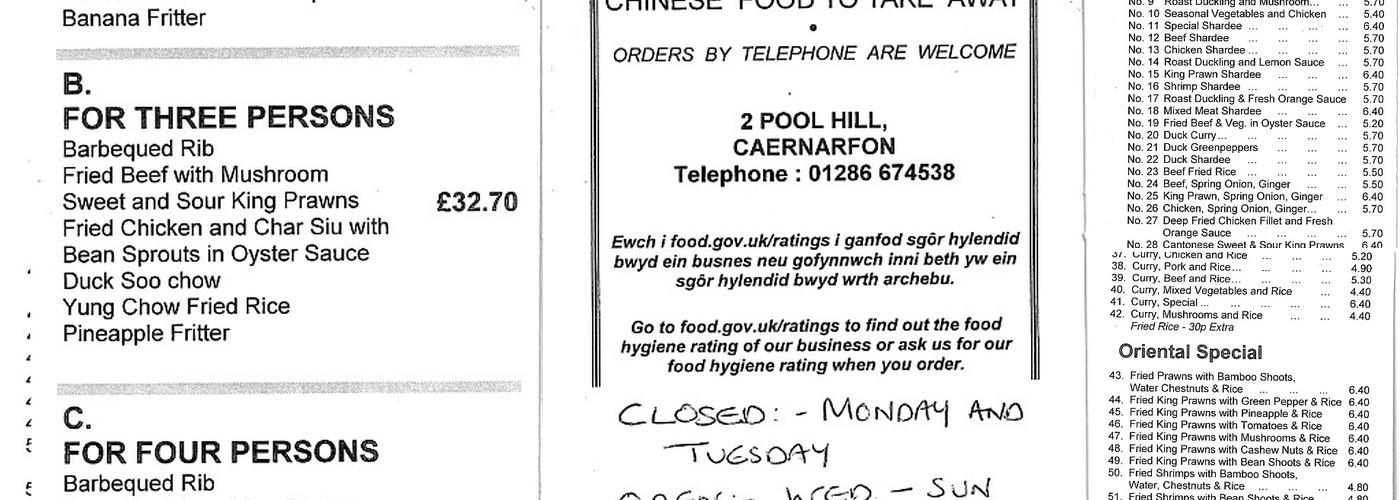 Banana Fritter
B.
FOR THREE PERSONS
Barbequed Rib
Fried Beef with Mushroom
Sweet and Sour King Prawns £32.70
Fried Chicken and Char Siu with
Bean Sprouts in Oyster Sauce
Duck Soo chow
Yung Chow Fried Rice
Pineapple Fritter
C.
FOR FOUR PERSONS
Barbequed Rib
CHINESE FOOD TO TAKE AWAY
•
ORDERS BY TELEPHONE ARE WELCOME
2 POOL HILL,
CAERNARFON
Telephone : 01286 674538
Ewch i food.gov.uk/ratings i ganfod sgôr hylendid
bwyd ein busnes neu gofynnwch inni beth yw ein
sgôr hylendid bwyd wrth archebu.
Go to food.gov.uk/ratings to find out the food
hygiene rating of our business or ask us for our
food hygiene rating when you order.
CLOSED: - MONDAY AND
TUESDAY
OPEN: - WED - SUN
No. 9 Roast Duckling and Mushroom... ... 5.70
No. 10 Seasonal Vegetables and Chicken ... 5.40
No. 11 Special Shardee ... ... ... ... 6.40
No. 12 Beef Shardee ... ... ... ... 5.70
No. 13 Chicken Shardee ... ... ... ... 5.70
No. 14 Roast Duckling and Lemon Sauce ... 5.70
No. 15 King Prawn Shardee ... ... ... 6.40
No. 16 Shrimp Shardee ... ... ... ... 5.70
No. 17 Roast Duckling & Fresh Orange Sauce 5.70
No. 18 Mixed Meat Shardee ... ... ... 6.40
No. 19 Fried Beef & Veg. in Oyster Sauce ... 5.20
No. 20 Duck Curry... ... ... ... ... 5.70
No. 21 Duck Greenpeppers ... ... ... 5.70
No. 22 Duck Shardee ... ... ... ... 5.70
No. 23 Beef Fried Rice ... ... ... ... 5.50
No. 24 Beef, Spring Onion, Ginger ... ... 5.50
No. 25 King Prawn, Spring Onion, Ginger ... 6.40
No. 26 Chicken, Spring Onion, Ginger... ... 5.70
No. 27 Deep Fried Chicken Fillet and Fresh
Orange Sauce ... ... ... ... 5.70
No. 28 Cantonese Sweet & Sour King Prawns 6.40
37. Curry, Chicken and Rice ... ... ... 5.20
38. Curry, Pork and Rice... ... ... ... 4.90
39. Curry, Beef and Rice... ... ... ... 5.30
40. Curry, Mixed Vegetables and Rice ... 4.40
41. Curry, Special ... ... ... ... ... 6.40
42. Curry, Mushrooms and Rice ... ... 4.40
Fried Rice - 30p Extra
Oriental Special
43. Fried Prawns with Bamboo Shoots,
Water Chestnuts & Rice ... ... ... 6.40
44. Fried King Prawns with Green Pepper & Rice 6.40
45. Fried King Prawns with Pineapple & Rice 6.40
46. Fried King Prawns with Tomatoes & Rice 6.40
47. Fried King Prawns with Mushrooms & Rice 6.40
48. Fried King Prawns with Cashew Nuts & Rice 6.40
49. Fried King Prawns with Bean Shoots & Rice 6.40
50. Fried Shrimps with Bamboo Shoots,
Water, Chestnuts & Rice ... ... ... 4.80
51. Fried Shrimps with Bean Shoots & Rice 4.80